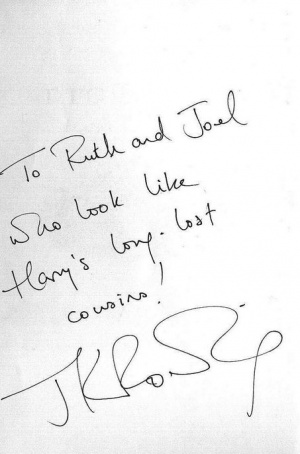 To Ruth and Joel
who look like
Harry's long-lost
cousins!
JKRowling